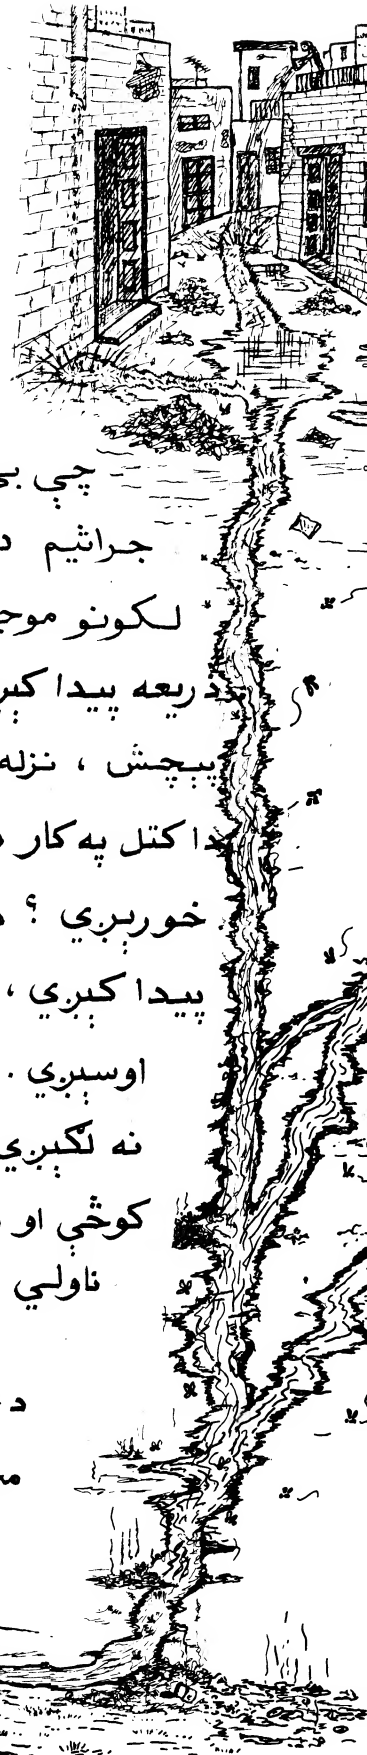 چې بې
جراثیم د
لکونو موجـ
ذریعه پیدا کېږ
پېچش ، نزله
داکتل په کار د
خورېږي ؟ د
پیدا کېږي ،
اوسېږي .
نه لګېږي
کوڅې او
ناولي
د